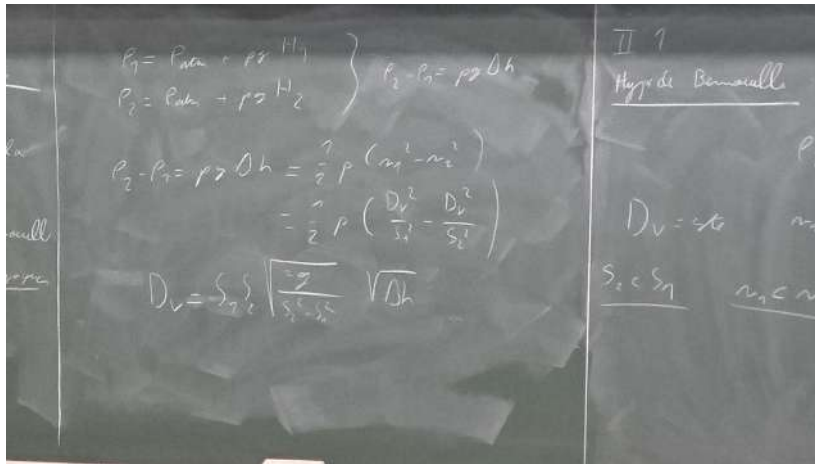 P₁ = Patm + ρg H₁
P₂ = Patm + ρg H₂
P₂ - P₁ = ρg Δh
P₂ - P₁ = ρg Δh = 1/2 ρ (v₁² - v₂²)
= 1/2 ρ (Dv²/S₁² - Dv²/S₂²)
Dv = S₁ S₂ √(2g/(S₂² - S₁²)) √Δh
II 1
Hyp de Bernoulli
Dv = cte
S₂ < S₁
v₁ <